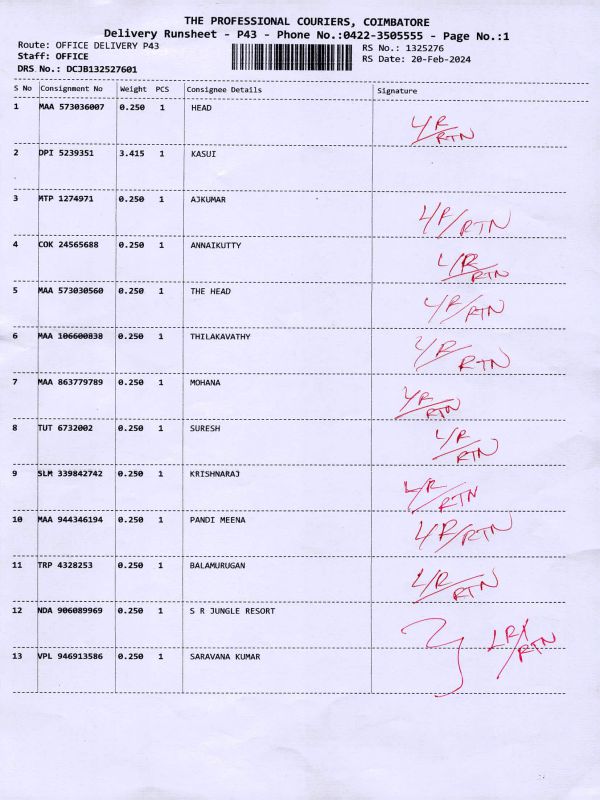 THE PROFESSIONAL COURIERS, COIMBATORE
Delivery Runsheet - P43 - Phone No.:0422-3505555 - Page No.:1
Route: OFFICE DELIVERY P43 RS No.: 1325276
Staff: OFFICE RS Date: 20-Feb-2024
DRS No.: DCJB132527601
S No Consignment No Weight PCS Consignee Details Signature
1 MAA 573036007 0.250 1 HEAD L/R/RTN
2 DPI 5239351 3.415 1 KASUI
3 MTP 1274971 0.250 1 AJKUMAR L/R/RTN
4 COK 24565688 0.250 1 ANNAIKUTTY L/R/RTN
5 MAA 573030560 0.250 1 THE HEAD L/R/RTN
6 MAA 106600838 0.250 1 THILAKAVATHY L/R/RTN
7 MAA 863779789 0.250 1 MOHANA L/R/RTN
8 TUT 6732002 0.250 1 SURESH L/R/RTN
9 SLM 339842742 0.250 1 KRISHNARAJ L/R/RTN
10 MAA 944346194 0.250 1 PANDI MEENA L/R/RTN
11 TRP 4328253 0.250 1 BALAMURUGAN L/R/RTN
12 NDA 906089969 0.250 1 S R JUNGLE RESORT LR/RTN
13 VPL 946913586 0.250 1 SARAVANA KUMAR